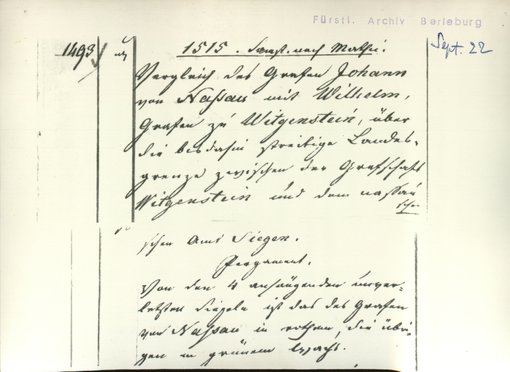 Fürstl. Archiv Berleburg
Sept. 22
1493
1515. Samst. nach Mathei.
Vergleich des Grafen Johann
von Naßau mit Wilhelm,
Grafen zu Witgenstein, über
die bis dahin streitige Landes-
grenze zwischen der Grafschaft
Witgenstein und dem nassau
ischen
schen Amt Siegen.
Pergament.
Von den 4 anhängenden unver-
letzten Siegeln ist das des Grafen
von Naßau in rothem, die übri-
gen in grünem Wachs.